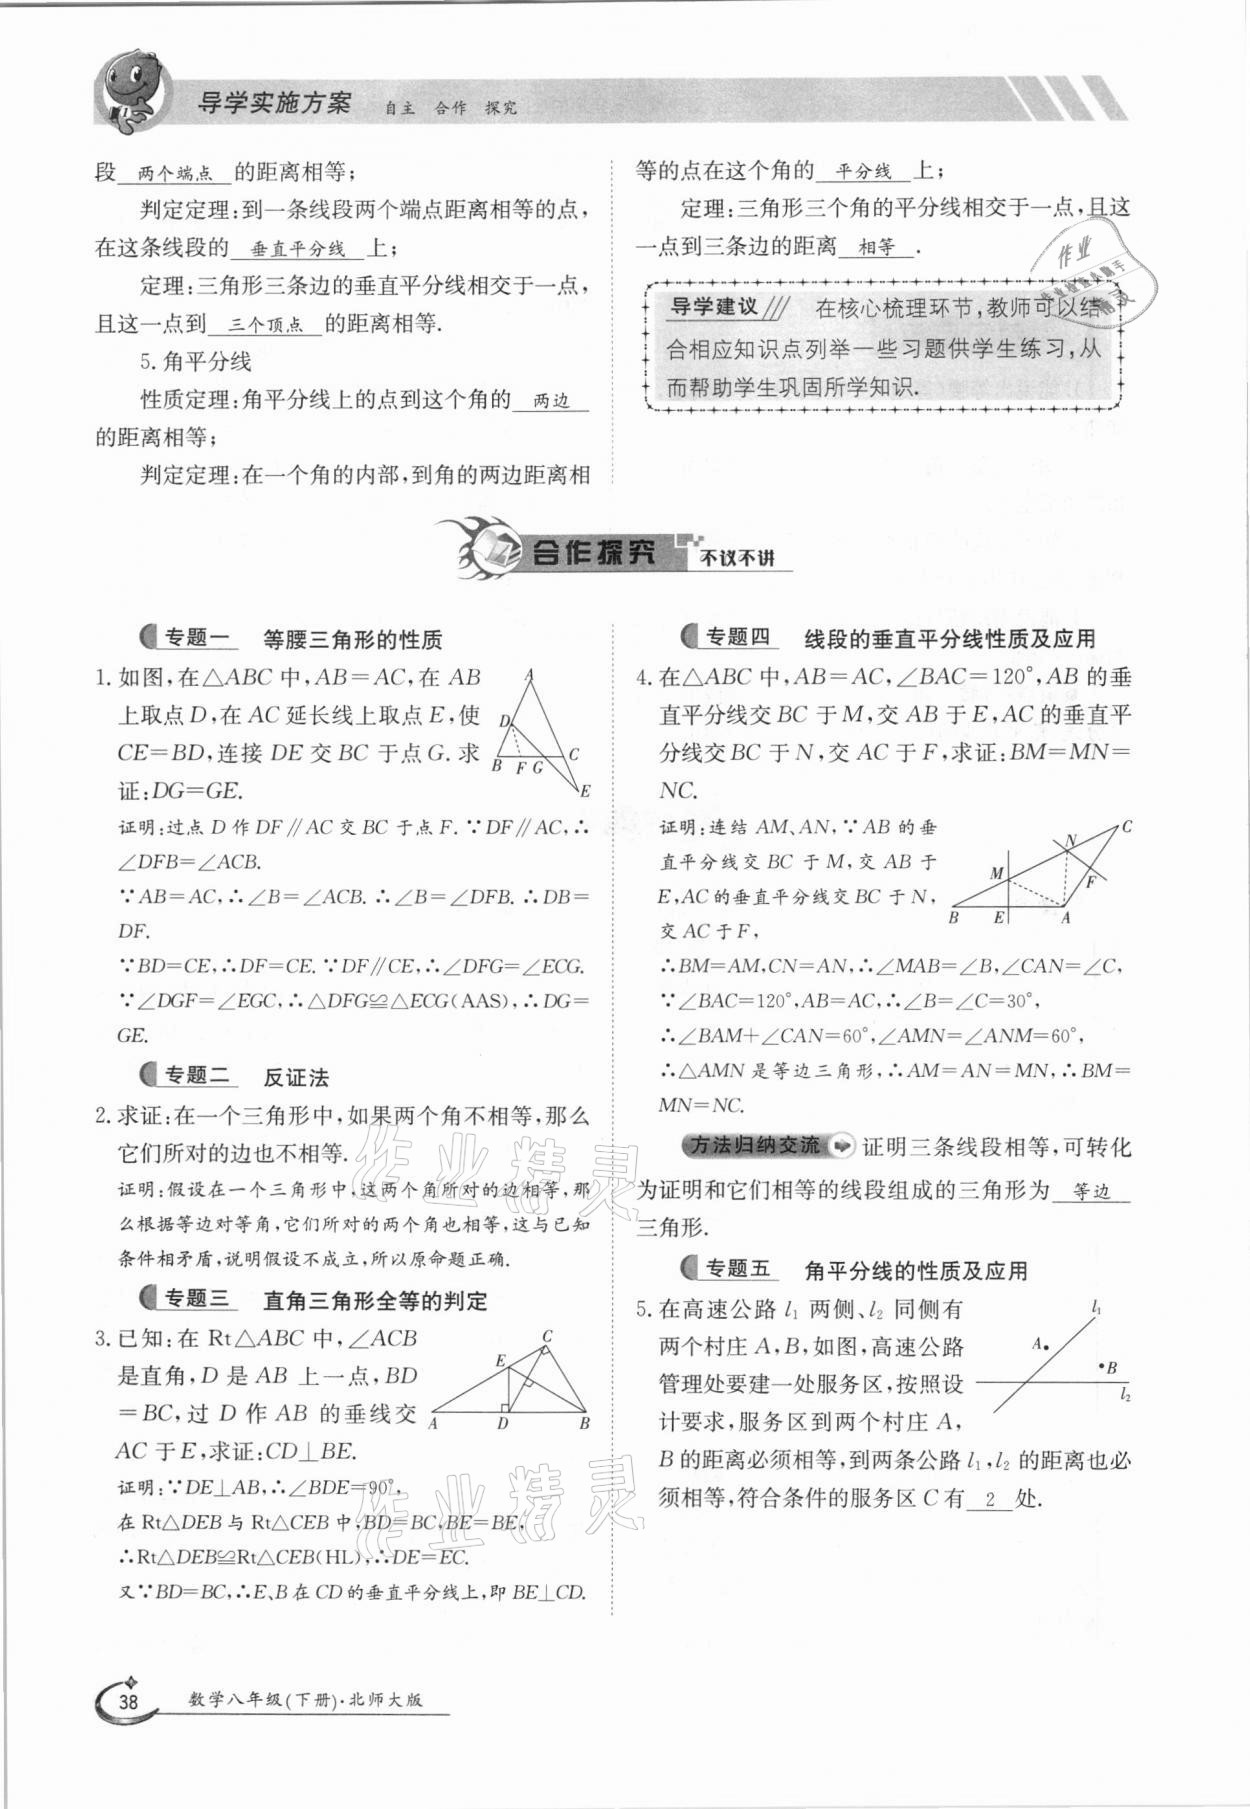 导学实施方案 自主 合作 探究
段 两个端点 的距离相等;
判定定理:到一条线段两个端点距离相等的点,
在这条线段的 垂直平分线 上;
定理:三角形三条边的垂直平分线相交于一点,
且这一点到 三个顶点 的距离相等.
5. 角平分线
性质定理:角平分线上的点到这个角的 两边
的距离相等;
判定定理:在一个角的内部,到角的两边距离相
等的点在这个角的 平分线 上;
定理:三角形三个角的平分线相交于一点,且这
一点到三条边的距离 相等 .
导学建议 在核心梳理环节,教师可以结
合相应知识点列举一些习题供学生练习,从
而帮助学生巩固所学知识.
合作探究 不议不讲
专题一 等腰三角形的性质
1. 如图,在△ABC中,AB=AC,在AB
上取点D,在AC延长线上取点E,使
CE=BD,连接DE交BC于点G.求
证:DG=GE.
A
D
B F G C
E
证明:过点D作DF∥AC交BC于点F.∵DF∥AC,∴
∠DFB=∠ACB.
∵AB=AC,∴∠B=∠ACB.∴∠B=∠DFB.∴DB=
DF.
∵BD=CE,∴DF=CE.∵DF∥CE,∴∠DFG=∠ECG.
∵∠DGF=∠EGC,∴△DFG≌△ECG(AAS),∴DG=
GE.
专题二 反证法
2. 求证:在一个三角形中,如果两个角不相等,那么
它们所对的边也不相等.
证明:假设在一个三角形中,这两个角所对的边相等,那
么根据等边对等角,它们所对的两个角也相等,这与已知
条件相矛盾,说明假设不成立,所以原命题正确.
专题三 直角三角形全等的判定
3. 已知:在Rt△ABC中,∠ACB
是直角,D是AB上一点,BD
=BC,过D作AB的垂线交
AC于E,求证:CD⊥BE.
C
E
A D B
证明:∵DE⊥AB,∴∠BDE=90°,
在Rt△DEB与Rt△CEB中,BD=BC,BE=BE,
∴Rt△DEB≌Rt△CEB(HL),∴DE=EC.
又∵BD=BC,∴E、B在CD的垂直平分线上,即BE⊥CD.
专题四 线段的垂直平分线性质及应用
4. 在△ABC中,AB=AC,∠BAC=120°,AB的垂
直平分线交BC于M,交AB于E,AC的垂直平
分线交BC于N,交AC于F,求证:BM=MN=
NC.
证明:连结AM、AN,∵AB的垂
直平分线交BC于M,交AB于
E,AC的垂直平分线交BC于N,
交AC于F,
C
N
M
F
B E A
∴BM=AM,CN=AN,∴∠MAB=∠B,∠CAN=∠C,
∵∠BAC=120°,AB=AC,∴∠B=∠C=30°,
∴∠BAM+∠CAN=60°,∠AMN=∠ANM=60°,
∴△AMN是等边三角形,∴AM=AN=MN,∴BM=
MN=NC.
方法归纳交流 证明三条线段相等,可转化
为证明和它们相等的线段组成的三角形为 等边
三角形.
专题五 角平分线的性质及应用
5. 在高速公路l₁两侧、l₂同侧有
两个村庄A,B,如图,高速公路
管理处要建一处服务区,按照设
计要求,服务区到两个村庄A,
B的距离必须相等,到两条公路l₁,l₂的距离也必
须相等,符合条件的服务区C有 2 处.
l₁
A
B
l₂
作业精灵
作业精灵
38 数学八年级(下册)·北师大版